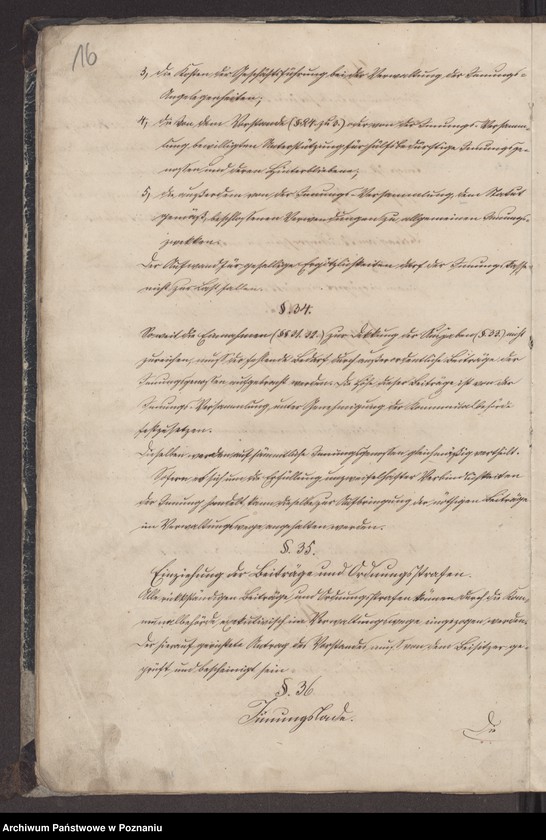 16
3, die Kosten der Geschäftsführung bei der Verwaltung der Innungs-
Angelegenheiten;
4, die von dem Vorstande (§ 24. zu 3.) oder von der Innungs-Versamm-
lung bewilligten Unterstützung für hülfsbedürftige Innungsge-
nossen und deren Hinterbliebene;
5, die außerdem von der Innungs-Versammlung, dem Statut
gemäß, beschlossenen Verwendungen zu allgemeinen Innungs-
zwecken.
Der Aufwand für gesellige Ergötzlichkeiten darf der Innungs-Kasse
nicht zur Last fallen.
§. 34.
Soweit die Einnahmen (§§ 31. 32.) zur Deckung der Ausgaben (§. 33.) nicht
zureichen, muß der fehlende Bedarf durch außerordentliche Beiträge der
Innungsgenossen aufgebracht werden. Die Höhe dieser Beiträge ist von der
Innungs-Versammlung unter Genehmigung der Kommunalbehörde
festzusetzen.
Dieselben werden auf sämmtliche Innungsgenossen gleichmäßig vertheilt.
Sofern es sich um die Erfüllung unzweifelhafter Verbindlichkeiten
der Innung handelt, kann dieselbe zur Aufbringung der nöthigen Beiträge
im Verwaltungswege angehalten werden.
§. 35.
Einziehung der Beiträge und Ordnungsstrafen.
Alle rückständigen Beiträge und Ordnungsstrafen können durch die Kom-
munalbehörde exekutivisch im Verwaltungswege eingezogen werden.
Der hierauf gerichtete Antrag des Vorstandes muß von dem Beisitzer ge-
prüft und bescheinigt sein.
§. 36
Innungslade.
Die
Archiwum Państwowe w Poznaniu
Archiwum Państwowe w Poznaniu